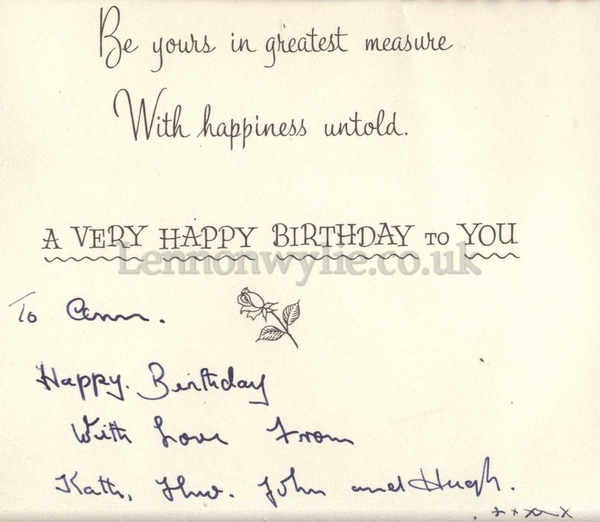 Be yours in greatest measure
With happiness untold.
A VERY HAPPY BIRTHDAY TO YOU
Lennonwylie.co.uk
To Ann.
Happy. Birthday
With Love From
Kath, John and Hugh.
xxxxx